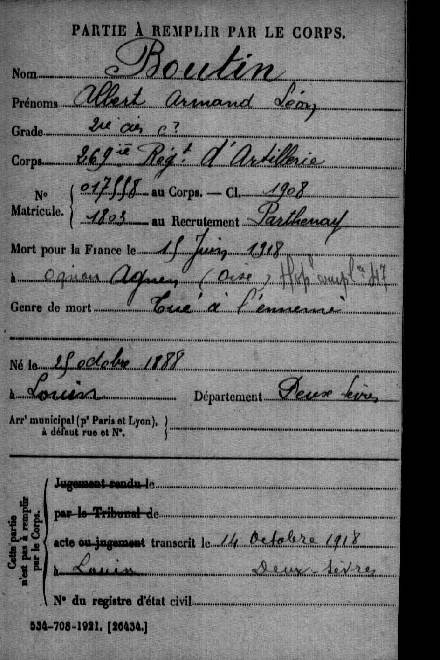 PARTIE À REMPLIR PAR LE CORPS.
Nom Boutin
Prénoms Albert Armand Léon
Grade 2e
Corps 269ie Régt d'Artillerie
No Matricule. { 017558 au Corps. — Cl. 1908
1803 au Recrutement Parthenay
Mort pour la France le 15 Juin 1918
à Ognon (Oise) Hop 47
Genre de mort Tué à l'ennemi
Né le 25 octobre 1888
à Louin Département Deux Sèvres
Arrt municipal (pr Paris et Lyon),
à défaut rue et No.
Cette partie n'est pas à remplir par le Corps.
Jugement rendu le
par le Tribunal de
acte ou jugement transcrit le 14 Octobre 1918
à Louin Deux-Sèvres
No du registre d'état civil
534-708-1921. [26434.]